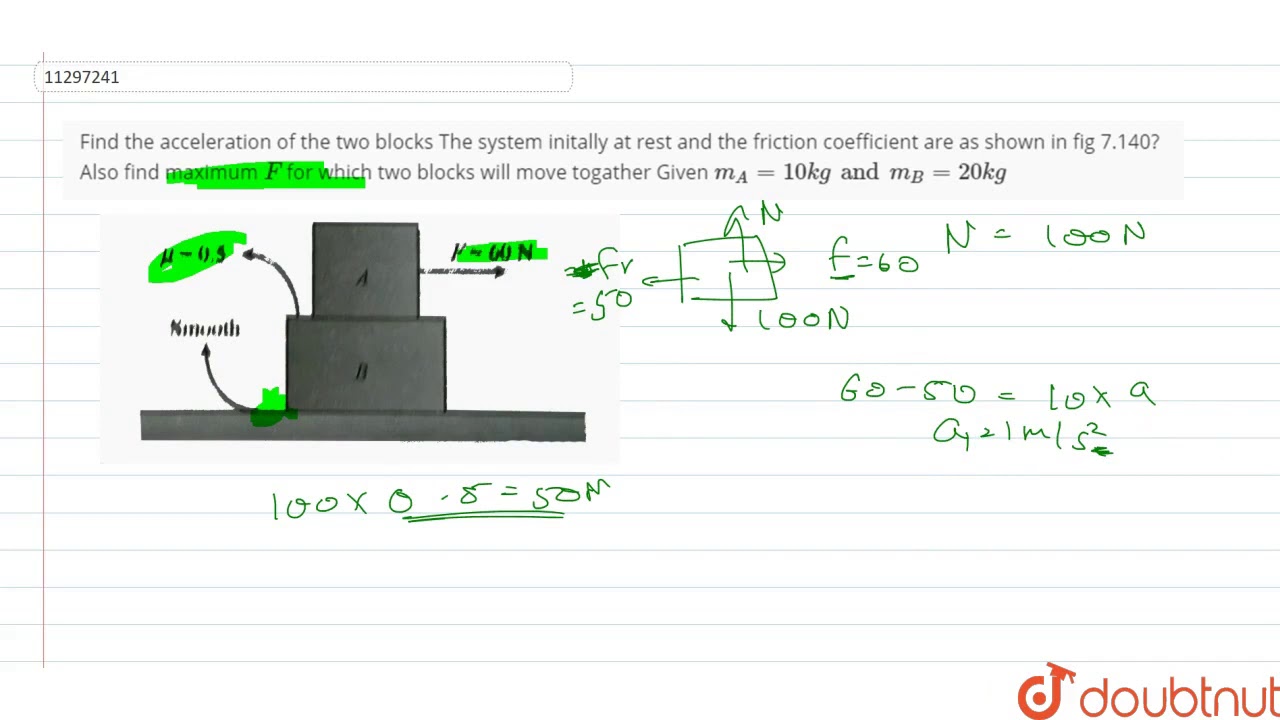 11297241
Find the acceleration of the two blocks The system initally at rest and the friction coefficient are as shown in fig 7.140?
Also find maximum F for which two blocks will move togather Given m_A = 10kg and m_B = 20kg
μ = 0.5
F = 60 N
A
Smooth
B
N
fr
= 50
f = 60
100N
N = 100N
60 - 50 = 10 x a
a = 1 m/s²
100 x 0.5 = 50N
doubtnut